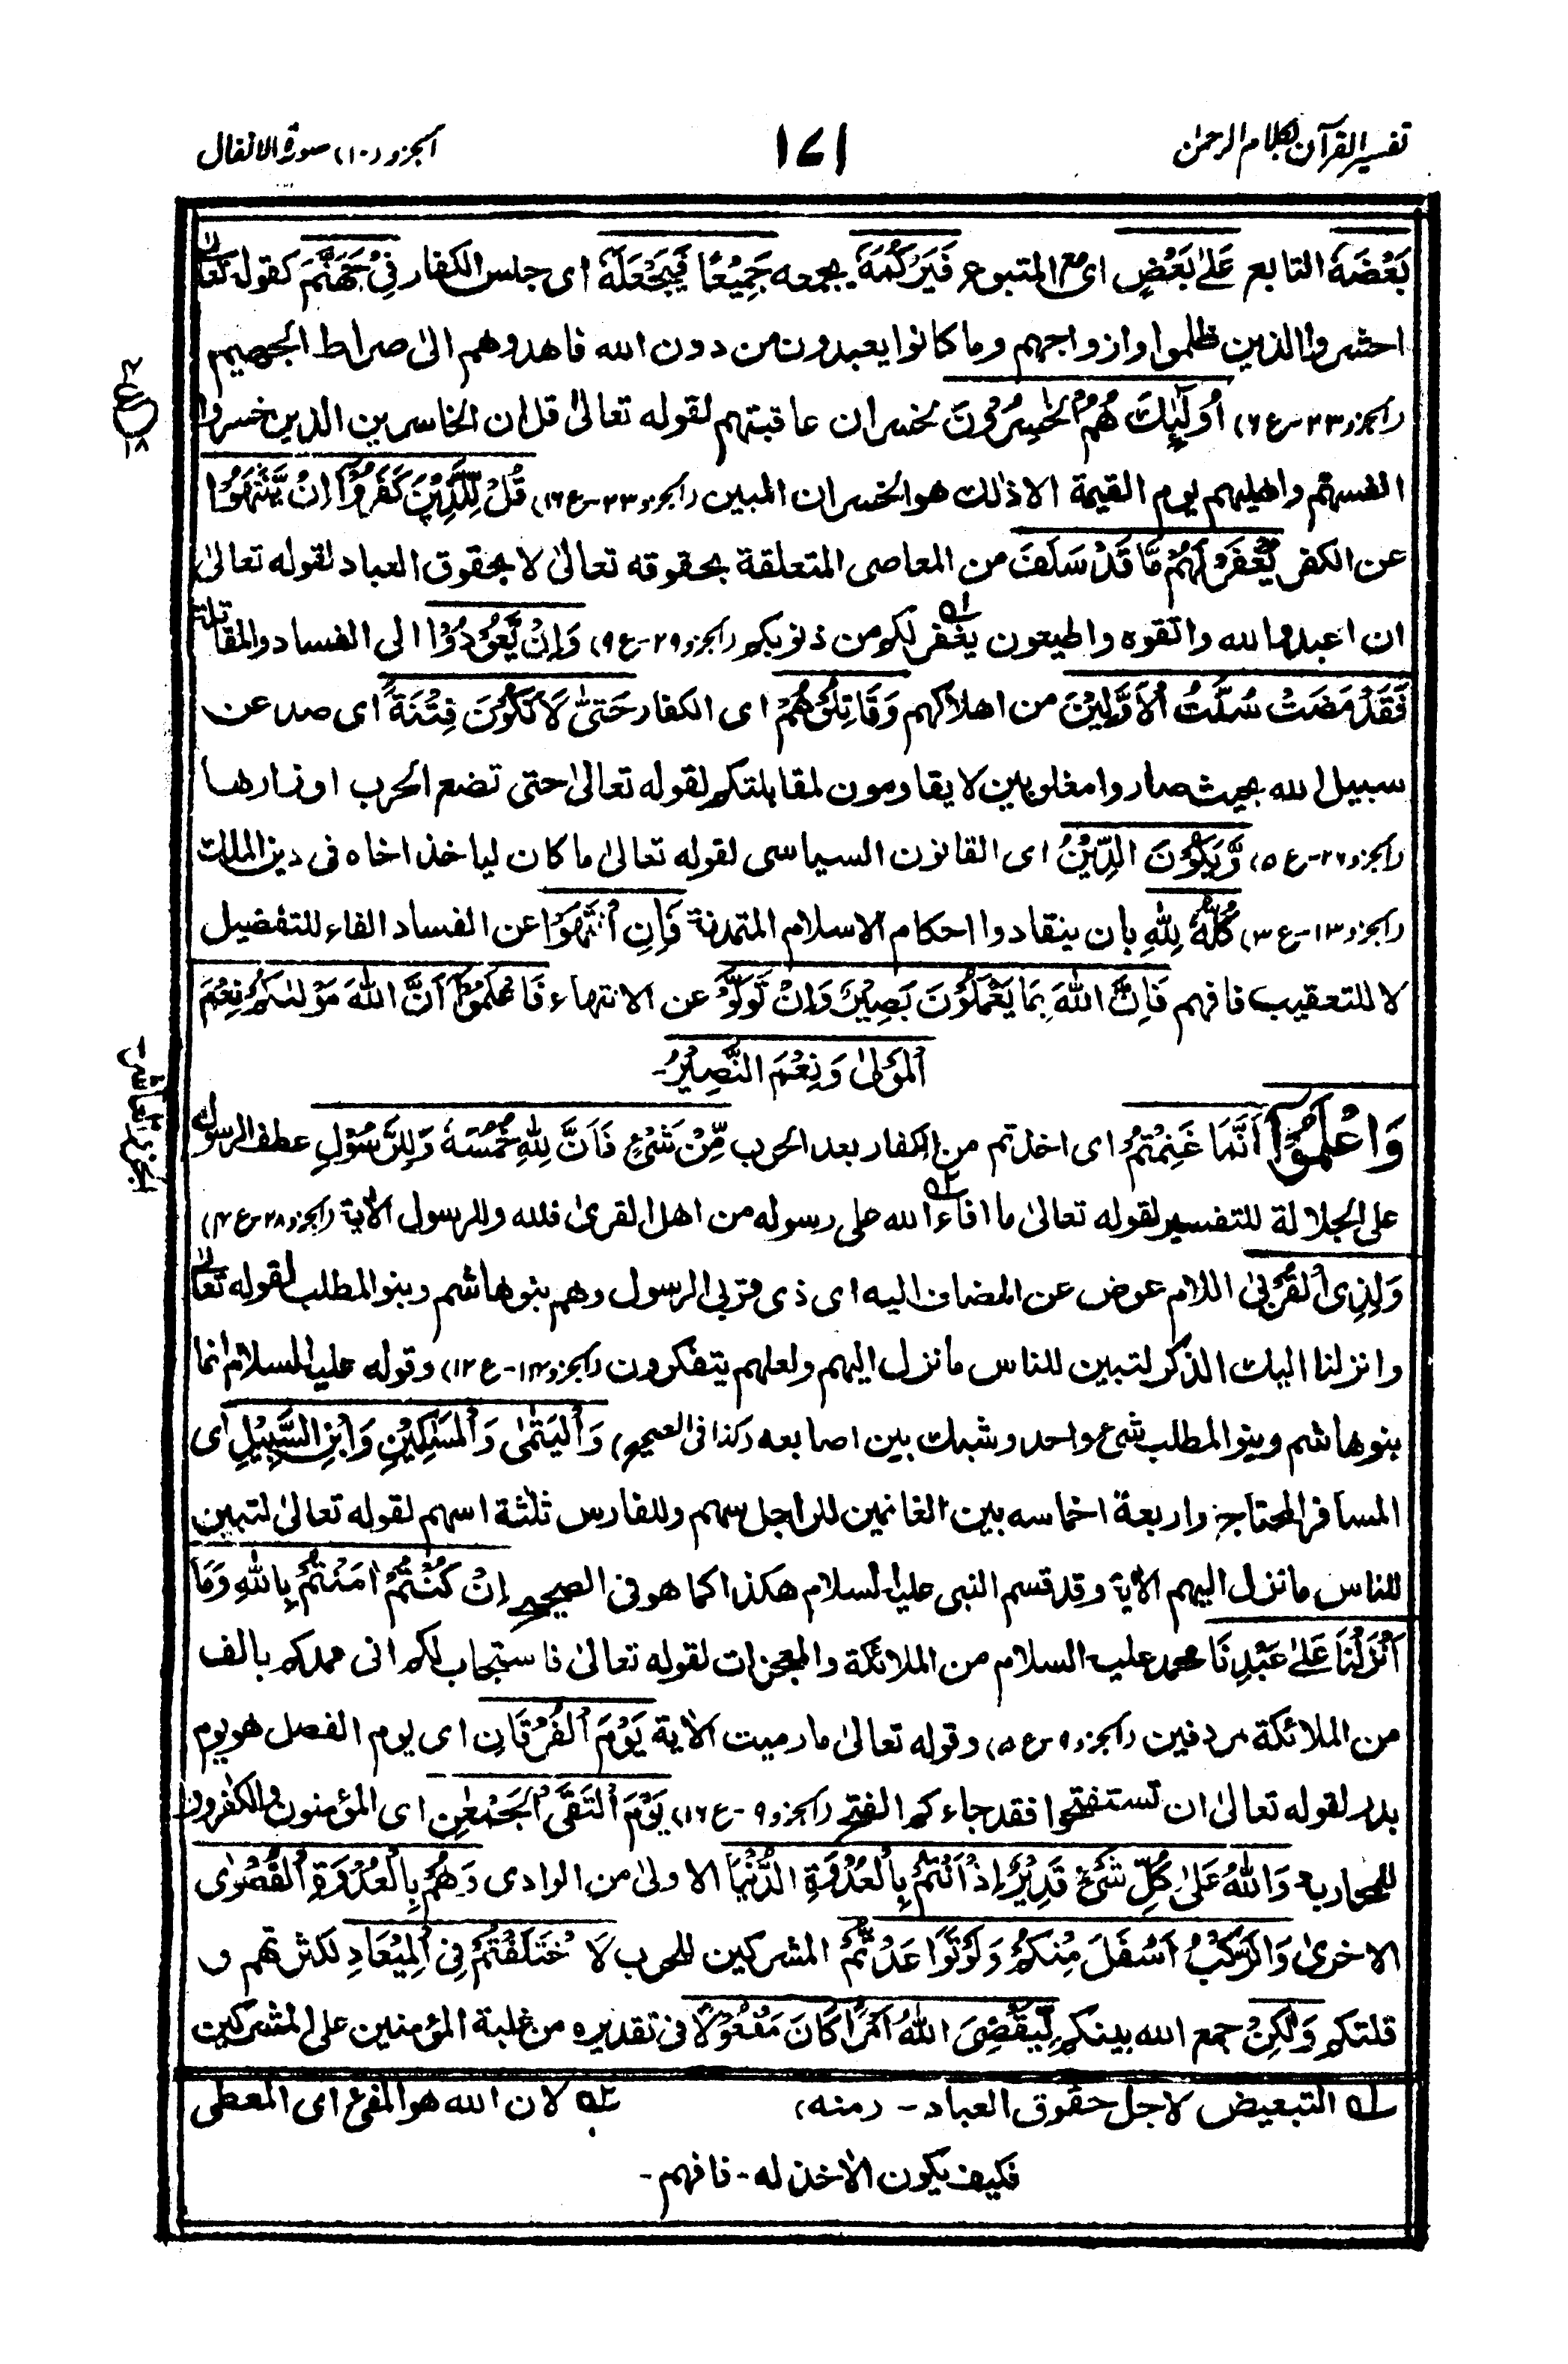 تفسير القرآن بكلام الرحمن
١٧١
الجزء (١٠) سورة الانفال
بَعْضَهٗ التابع عَلٰى بَعْضٍ اى مع المتبوع فَيَرْكُمَهٗ يجمعه جَمِيْعًا فَيَجْعَلَهٗ اى جلس الكفار فِىْ جَهَنَّمَ كقوله تعالىٰ
احشروا الذين ظلموا وازواجهم وما كانوا يعبدون من دون الله فاهدوهم الىٰ صراط الجحيم
(الجزو ٢٣-ع ٦) اُولٰٓئِكَ هُمُ الْخٰسِرُوْنَ بخسران عاقبتهم لقوله تعالىٰ قل ان الخاسرين الذين خسروا
انفسهم واهليهم يوم القيمة الا ذلك هو الخسران المبين (الجزو ٢٣-ع ١٦) قُلْ لِّلَّذِيْنَ كَفَرُوْٓا اِنْ يَّنْتَهُوْا
ع ١٨
عن الكفر يُغْفَرْ لَهُمْ مَّا قَدْ سَلَفَ من المعاصى المتعلقة بحقوقه تعالىٰ لا بحقوق العباد لقوله تعالىٰ
ان اعبدوا الله واتقوه واطيعون يغفر لكم من ذنوبكم (الجزو ٢٩-ع ٩) وَاِنْ يَّعُوْدُوْا الى الفساد والمقاتلة
فَقَدْ مَضَتْ سُنَّتُ الْاَوَّلِيْنَ من اهلاكهم وَقَاتِلُوْهُمْ اى الكفار حَتّٰى لَا تَكُوْنَ فِتْنَةٌ اى صد عن
سبيل الله بحيث صاروا مغلوبين لا يقاومون لمقابلتكم لقوله تعالىٰ حتى تضع الحرب اوزارها
(الجزو ٢٦-ع ٥) وَّيَكُوْنَ الدِّيْنُ اى القانون السياسى لقوله تعالىٰ ما كان لياخذ اخاه فى دين الملك
(الجزو ١٣-ع ٣) كُلُّهٗ لِلّٰهِ بان ينقادوا احكام الاسلام المتمدنة فَاِنِ انْتَهَوْا عن الفساد الفاء للتفضيل
لا للتعقيب فافهم فَاِنَّ اللّٰهَ بِمَا يَعْمَلُوْنَ بَصِيْرٌ وَاِنْ تَوَلَّوْ عن الانتهاء فَاعْلَمُوْٓا اَنَّ اللّٰهَ مَوْلٰىكُمْ نِعْمَ
الْمَوْلٰى وَنِعْمَ النَّصِيْرُ-
وَاعْلَمُوْٓا اَنَّمَا غَنِمْتُمْ اى اخذتم من الكفار بعد الحرب مِّنْ شَىْءٍ فَاَنَّ لِلّٰهِ خُمُسَهٗ وَلِلرَّسُوْلِ عطف الرسول
الجزء العاشر
على الجلالة للتفسير لقوله تعالىٰ ما افاء الله على رسوله من اهل القرىٰ فلله وللرسول الاٰية (الجزو ٢٨-ع ٤)
وَلِذِى الْقُرْبٰى اللام عوض عن المضاف اليه اى ذى قربى الرسول وهم بنوهاشم وبنو المطلب لقوله تعالىٰ
وانزلنا اليك الذكر لتبين للناس ما نزل اليهم ولعلهم يتفكرون (الجزو ١٤-ع ١٢) وقوله عليه السلام انما
بنوهاشم وبنو المطلب شىء واحد وشبك بين اصابعه (كذا فى الصحيح) وَالْيَتٰمٰى وَالْمَسٰكِيْنِ وَابْنِ السَّبِيْلِ اى
المسافر المحتاج واربعة اخماسه بين الغانمين للراجل سهم وللفارس ثلثة اسهم لقوله تعالىٰ لتبين
للناس ما نزل اليهم الاٰية وقد قسم النبى عليه السلام هكذا كما هو فى الصحيح اِنْ كُنْتُمْ اٰمَنْتُمْ بِاللّٰهِ وَمَآ
اَنْزَلْنَا عَلٰى عَبْدِنَا محمد عليه السلام من الملائكة والمعجزات لقوله تعالىٰ فاستجاب لكم انى ممدكم بالف
من الملائكة مردفين (الجزو ٩-ع ١٥) وقوله تعالىٰ ما رميت الاٰية يَوْمَ الْفُرْقَانِ اى يوم الفصل هو يوم
بدر لقوله تعالىٰ ان تستفتحوا فقد جاءكم الفتح (الجزو ٩-ع ١٦) يَوْمَ الْتَقَى الْجَمْعٰنِ اى المؤمنون والكٰفرون
للمحاربة وَاللّٰهُ عَلٰى كُلِّ شَىْءٍ قَدِيْرٌ اِذْ اَنْتُمْ بِالْعُدْوَةِ الدُّنْيَا الاولىٰ من الوادى وَهُمْ بِالْعُدْوَةِ الْقُصْوٰى
الاخرىٰ وَالرَّكْبُ اَسْفَلَ مِنْكُمْ وَلَوْ تَوَاعَدْتُّمْ المشركين للحرب لَاخْتَلَفْتُمْ فِى الْمِيْعَادِ لكثرتهم و
قلتكم وَلٰكِنْ جمع الله بينكم لِّيَقْضِىَ اللّٰهُ اَمْرًا كَانَ مَفْعُوْلًا فى تقديره من غلبة المؤمنين على المشركين
١ە التبعيض لاجل حقوق العباد - (منه)
٢ە لان الله هو المفئ اى المعطى
فكيف يكون الاٰخذ له - فافهم -